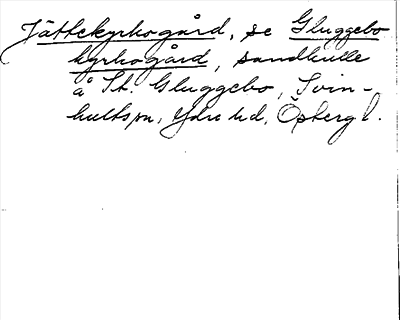 Jättekyrkogård, se Gluggebo
kyrkogård, sandkulle
å St. Gluggebo, Svin-
hultssn, Ydre hd, Östergl.